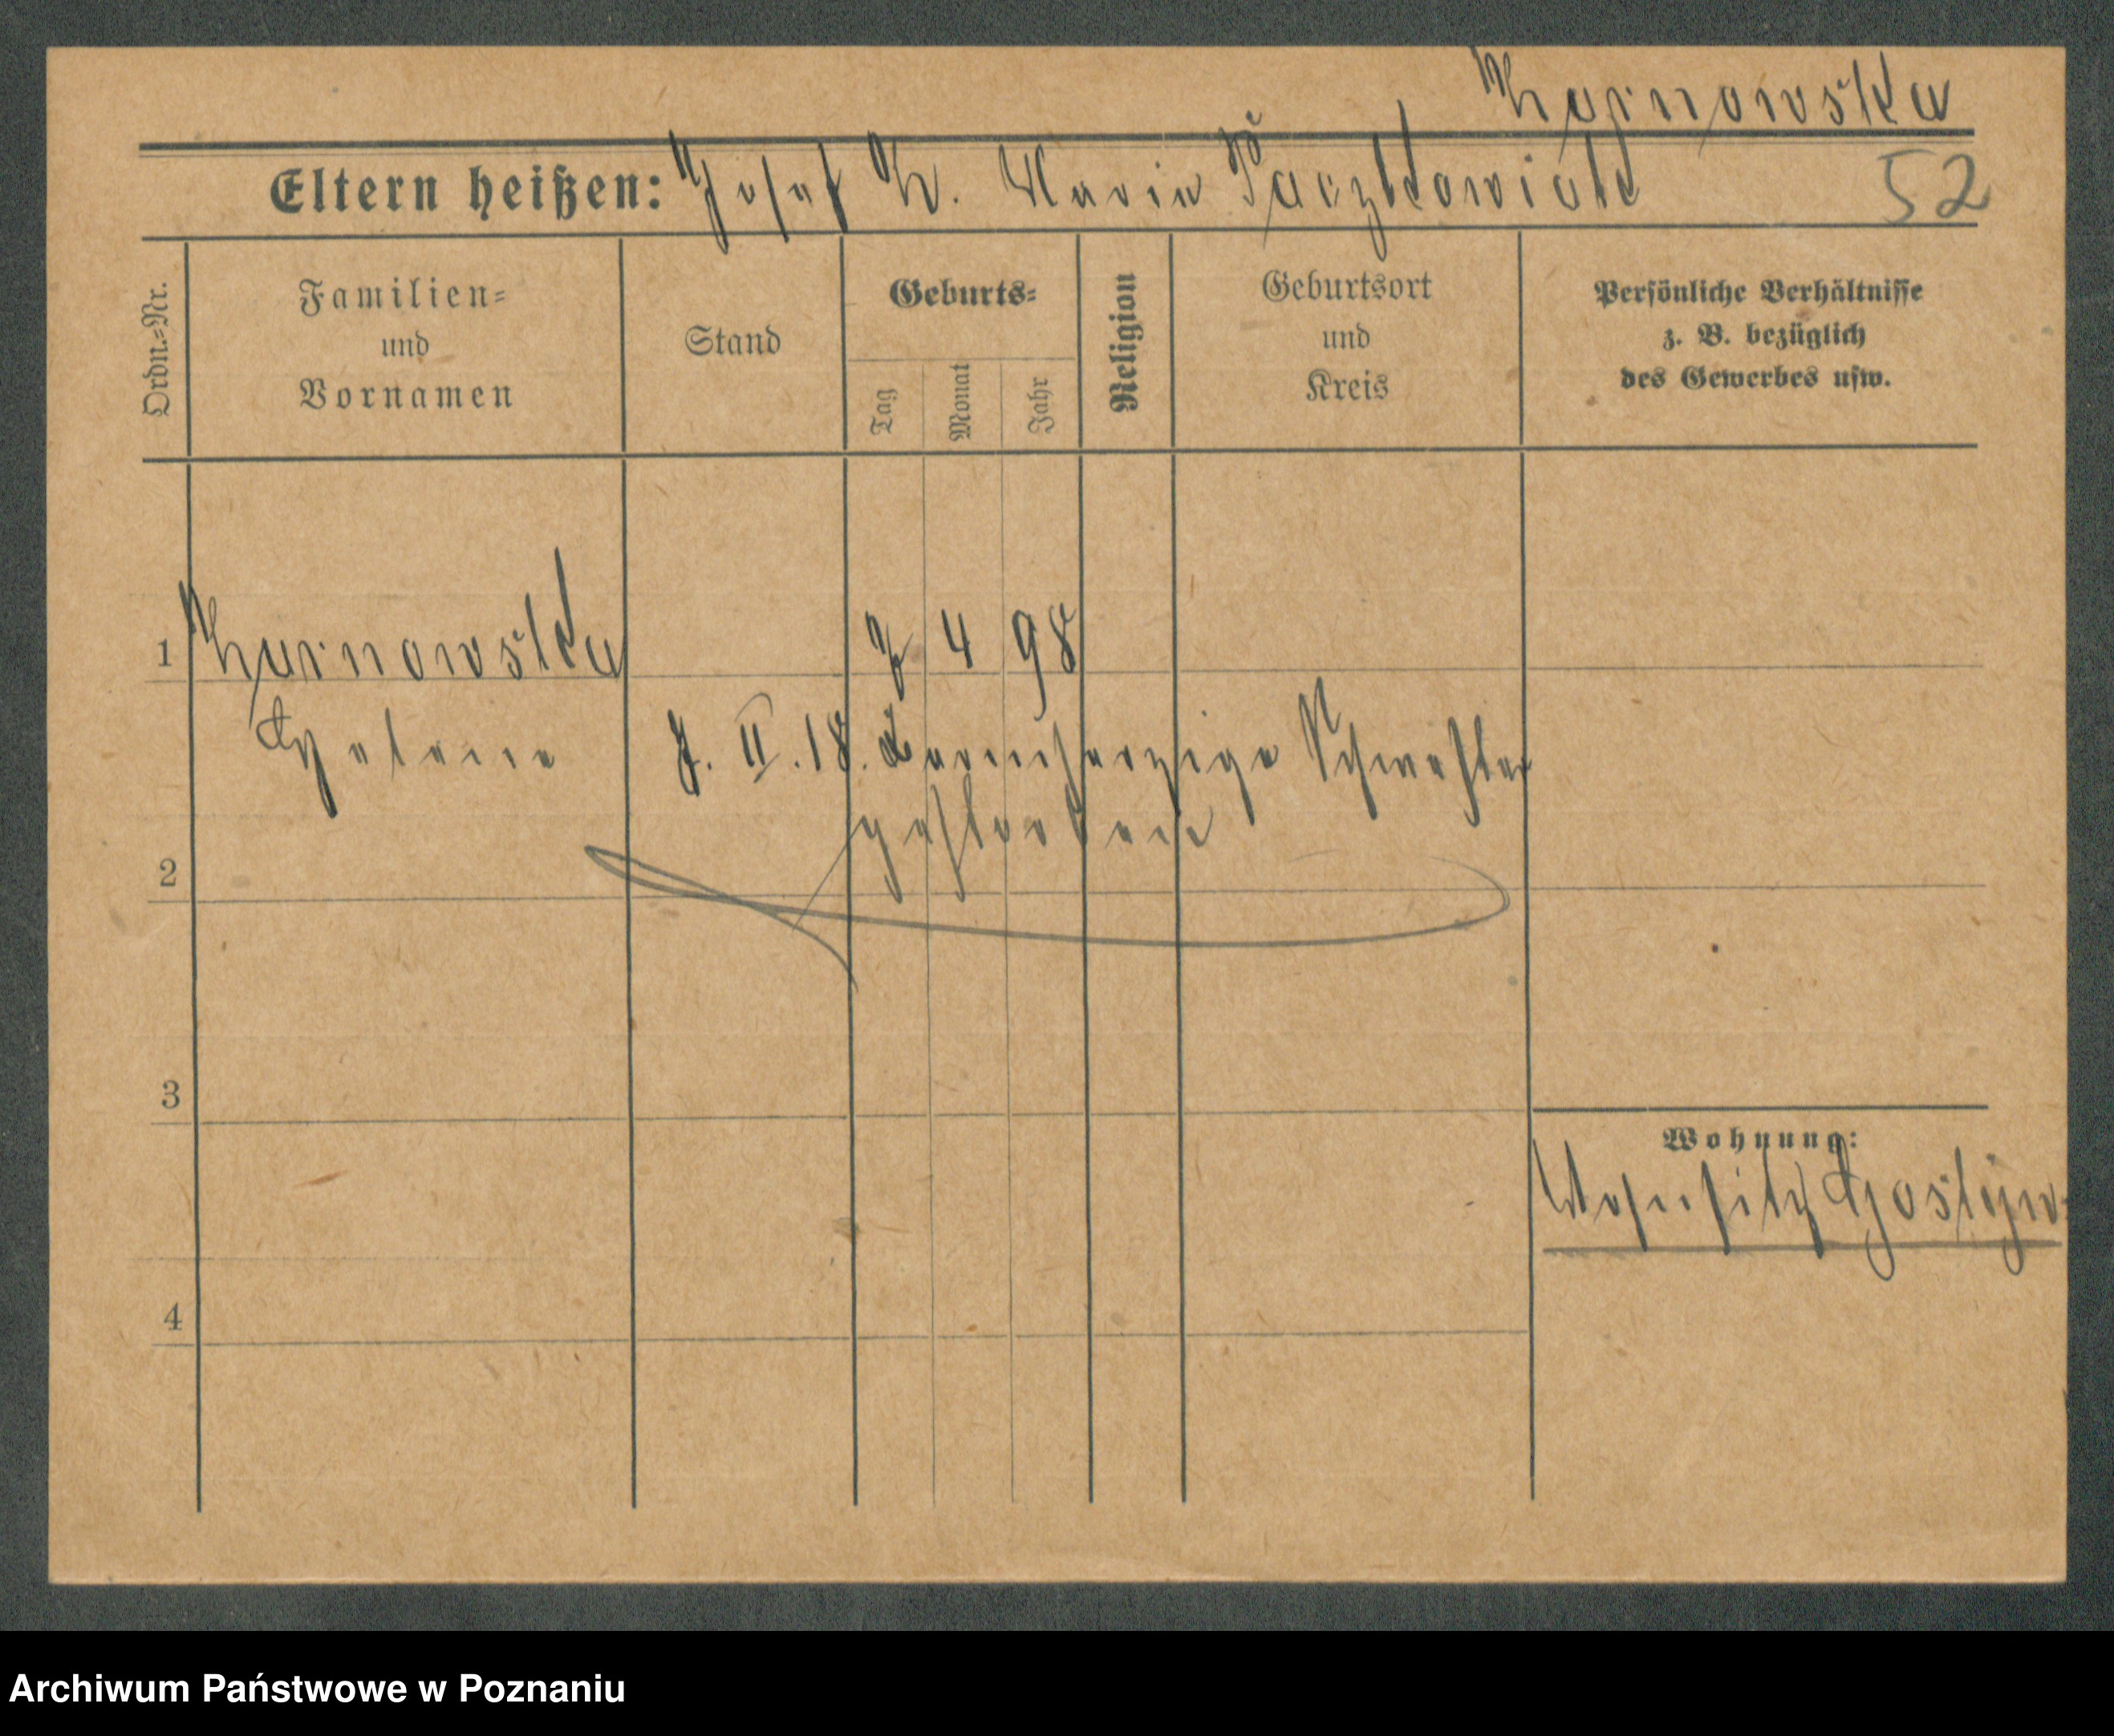 Kurnowska
Eltern heißen: Josef K. Maria Paczkowiak
52
Ordn.=Nr.
Familien=
und
Vornamen
Stand
Geburts=
Tag
Monat
Jahr
Religion
Geburtsort
und
Kreis
Persönliche Verhältnisse
z. B. bezüglich
des Gewerbes usw.
1 Kurnowska 7 4 98
Helene 7. II. 18. Barmherzige Schwester
gestorben
2
3
Wohnung:
Wohnsitz Gostyn
4
Archiwum Państwowe w Poznaniu